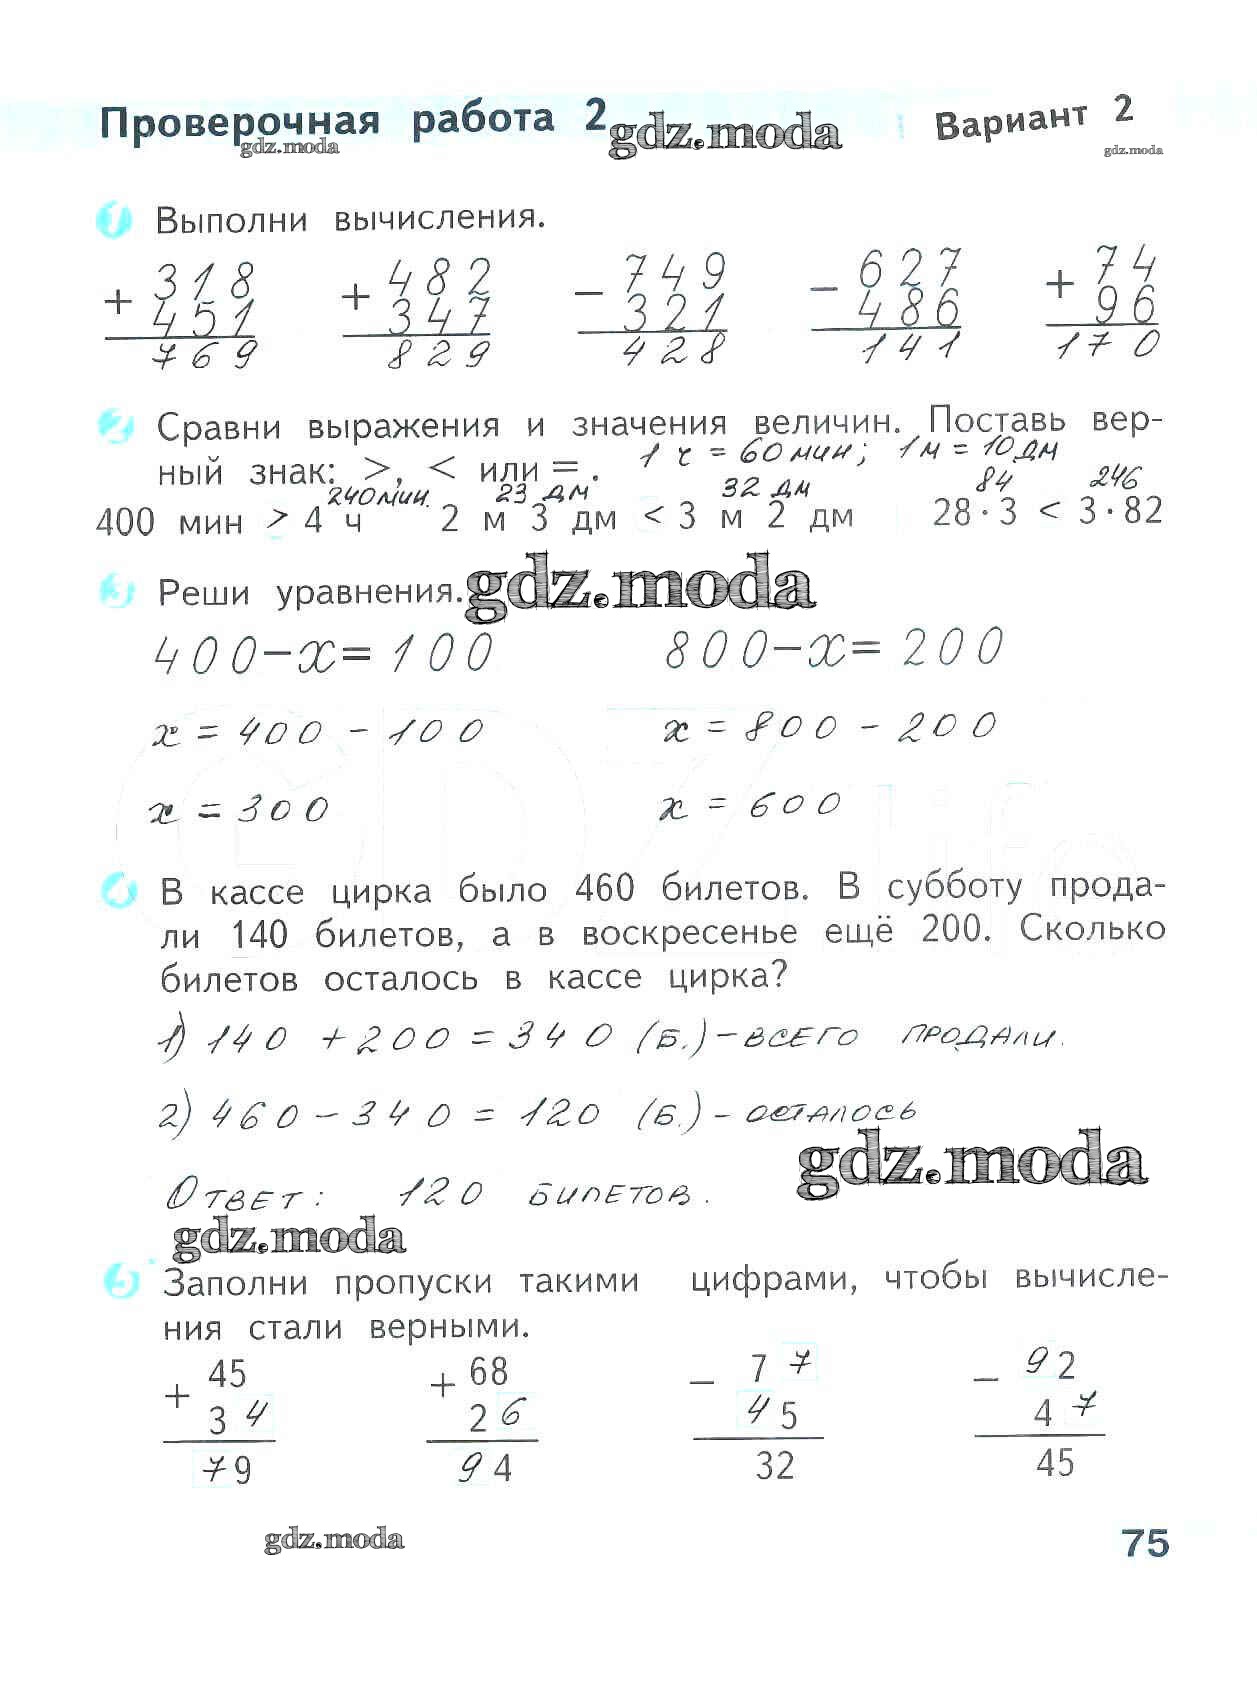 Проверочная работа 2 gdz.moda Вариант 2
gdz.moda gdz.moda
1 Выполни вычисления.
+ 318 + 482 − 749 − 627 + 74
451 347 321 486 96
769 829 428 141 170
2 Сравни выражения и значения величин. Поставь вер-
1 ч = 60 мин; 1 м = 10 дм
ный знак: >, < или = .
240 мин. 23 дм 32 дм 84 246
400 мин > 4 ч 2 м 3 дм < 3 м 2 дм 28 · 3 < 3 · 82
3 Реши уравнения. gdz.moda
400 − x = 100 800 − x = 200
x = 400 − 100 x = 800 − 200
x = 300 x = 600
4 В кассе цирка было 460 билетов. В субботу прода-
ли 140 билетов, а в воскресенье ещё 200. Сколько
билетов осталось в кассе цирка?
1) 140 + 200 = 340 (б.) – всего продали.
2) 460 − 340 = 120 (б.) – осталось
gdz.moda
Ответ: 120 билетов.
gdz.moda
5 Заполни пропуски такими цифрами, чтобы вычисле-
ния стали верными.
+ 45 + 68 − 77 − 92
34 26 45 47
79 94 32 45
gdz.moda 75